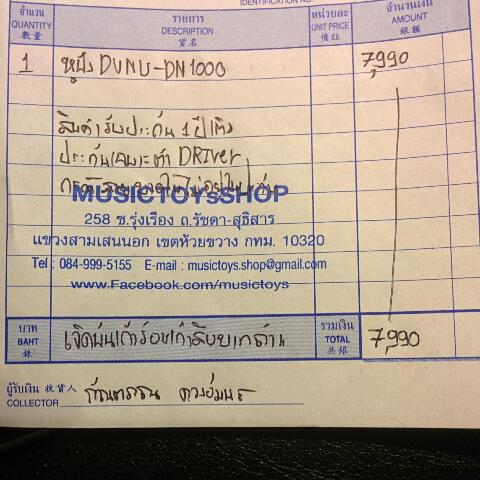 IDENTIFICATION NO.
จำนวน
QUANTITY
數量
รายการ
DESCRIPTION
貨名
หน่วยละ
UNIT PRICE
價註
จำนวนเงิน
AMOUNT
銀額
1 หูฟัง DUNU-DN1000 7,990
สินค้ารับประกัน 1 ปีเต็ม
ประกันเฉพาะตัว DRIVER
MUSICTOYsSHOP
258 ซ.รุ่งเรือง ถ.รัชดา-สุทธิสาร
แขวงสามเสนนอก เขตห้วยขวาง กทม. 10320
Tel : 084-999-5155 E-mail : musictoys.shop@gmail.com
www.Facebook.com/musictoys
บาท
BAHT
銖
เจ็ดพันเก้าร้อยเก้าสิบบาทถ้วน
รวมเงิน
TOTAL
共銀
7,990
ผู้รับเงิน 收貨人
COLLECTOR